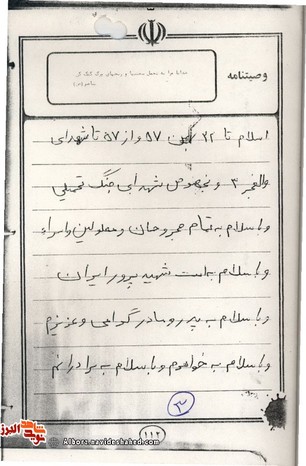 وصیتنامه
خدایا مرا به تحمل
اسلام تا ۲۲ بهمن ۵۷ و از ۵۷ تا شهدای
والفجر ۳ و بخصوص شهدای جنگ تحمیلی
و با سلام به تمام مجروحان و معلولین و اسراء
و با سلام به امت شهید پرور ایران
و با سلام به پدر و مادر گرامی و عزیزم
و با سلام به خواهرم و با سلام به برادرانم
۲
۱۱۲
نوید شاهد
البرز
Alborz.navideshahed.com